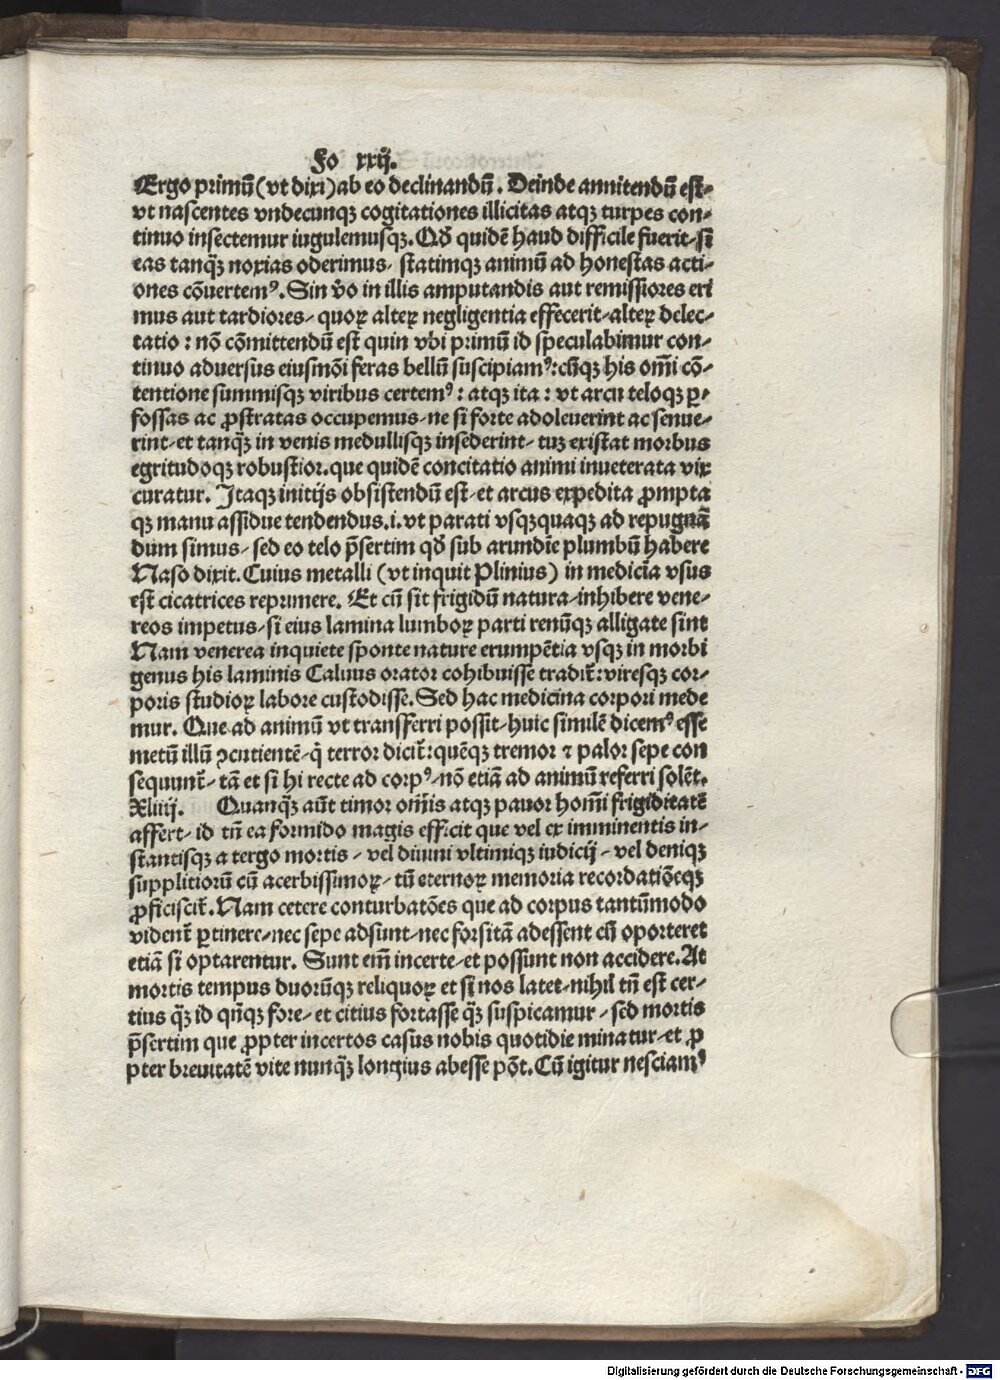 Fo xxij.
Ergo primū (vt dixi) ab eo declinandū. Deinde annitendū est-
vt nascentes vndecunqꝫ cogitationes illicitas atqꝫ turpes con-
tinuo insectemur iugulemusqꝫ. Qđ quidē haud difficile fuerit-si
eas tanqꝫ̄ noxias oderimus- statimqꝫ animū ad honestas acti-
ones cōuertemꝰ. Sin v̄o in illis amputandis aut remissiores eri
mus aut tardiores- quoꝝ alteꝝ negligentia effecerit-alteꝝ delec-
tatio: nō cōmittendū est quin vbi primū id speculabimur con-
tinuo aduersus eiusmōi feras bellū suscipiamꝰ: cūqꝫ his om̄i cō-
tentione summisqꝫ viribus certemꝰ: atqꝫ ita: vt arcu teloqꝫ ꝑ-
fossas ac ꝓstratas occupemus-ne si forte adoleuerint ac senue-
rint-et tanqꝫ̄ in venis medullisqꝫ insederint- tuꝫ existat morbus
egritudoqꝫ robustior. que quidē concitatio animi inueterata vix
curatur. Itaqꝫ initijs obsistendū est-et arcus expedita ꝓmpta
qꝫ manu assidue tendendus.i. vt parati vsqꝫquaqꝫ ad repugnā
dum simus- sed eo telo p̄sertim qđ sub arundīe plumbū habere
Naso dixit. Cuius metalli (vt inquit Plinius) in medicīa vsus
est cicatrices reprimere. Et cū sit frigidū natura-inhibere vene-
reos impetus-si eius lamina lumboꝝ parti renūqꝫ alligate sint
Nam venerea inquiete sponte nature erumpētia vsqꝫ in morbi
genus his laminis Caluus orator cohibuisse tradit̄: viresqꝫ cor-
poris studioꝝ labore custodisse. Sed hac medicina corpori mede
mur. Que ad animū vt transferri possit-huic similē dicemꝰ esse
metū illū ꝯcutientē-q̄ terror dicit̄: quēqꝫ tremor ⁊ palor sepe con
sequunt̄- tā et si hi recte ad corpꝰ-nō etiā ad animū referri solēt.
Xliiij. Quanqꝫ̄ aūt timor om̄is atqꝫ pauor homī frigiditatē
affert- id tn̄ ea formido magis efficit que vel ex imminentis in-
stantisqꝫ a tergo mortis- vel diuini vltimiqꝫ iudicij- vel deniqꝫ
supplitiorū cū acerbissimoꝝ- tū eternoꝝ memoria recordatiōeqꝫ
ꝓficiscit̄. Nam cetere conturbatōes que ad corpus tantūmodo
vident̄ ꝑtinere-nec sepe adsunt-nec forsitā adessent cū oporteret
etiā si optarentur. Sunt em̄ incerte-et possunt non accidere. At
mortis tempus duorūqꝫ reliquoꝝ et si nos latet-nihil tn̄ est cer-
tius qꝫ̄ id qn̄qꝫ fore- et citius fortasse qꝫ̄ suspicamur- sed mortis
p̄sertim que ꝓpter incertos casus nobis quotidie minatur-et ꝓ
pter breuitatē vite nunqꝫ̄ longius abesse pōt. Cū igitur nesciamꝰ
Digitalisierung gefördert durch die Deutsche Forschungsgemeinschaft - DFG